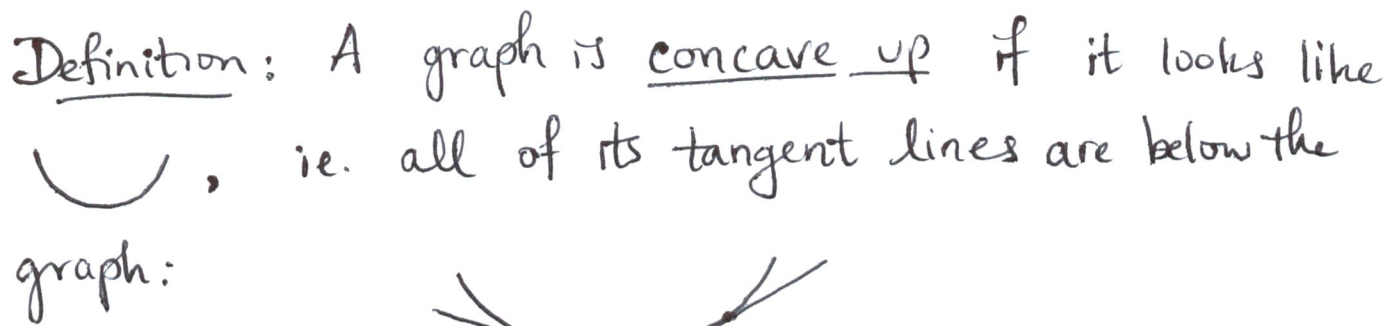 Definition: A graph is concave up if it looks like
, ie. all of its tangent lines are below the
graph: